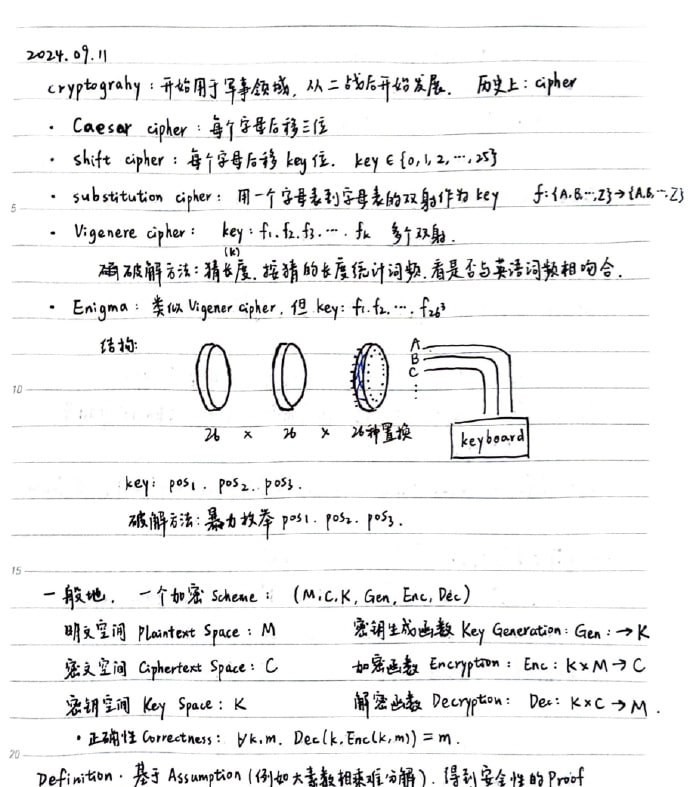 2024.09.11
cryptograhy：开始用于军事领域，从二战后开始发展. 历史上：cipher
· Caesar cipher：每个字母后移三位
· shift cipher：每个字母后移 key 位. key ∈ {0,1,2,…,25}
5
· substitution cipher：用一个字母表到字母表的双射作为 key f: {A.B.…,Z}→{A.B.…Z}
· Vigenere cipher： key：f₁.f₂.f₃.…. fₖ 多个双射.
破解方法：猜长度(k)，按猜的长度统计词频，看是否与英语词频相吻合.
· Enigma：类似 Vigener cipher，但 key：f₁.f₂.….f₂₆³
结构：
A
B
C
⋮
10
26 × 26 × 26种置换
keyboard
key：pos₁. pos₂. pos₃.
破解方法：暴力枚举 pos₁. pos₂. pos₃.
15
一般地，一个加密 Scheme：(M,C,K,Gen,Enc,Dec)
明文空间 Plaintext Space：M 密钥生成函数 Key Generation：Gen：→K
密文空间 Ciphertext Space：C 加密函数 Encryption：Enc：K×M→C
密钥空间 Key Space：K 解密函数 Decryption：Dec：K×C→M.
· 正确性 Correctness：∀k,m. Dec(k,Enc(k,m))=m.
20
Definition. 基于 Assumption (例如大素数相乘难分解)，得到安全性的 Proof